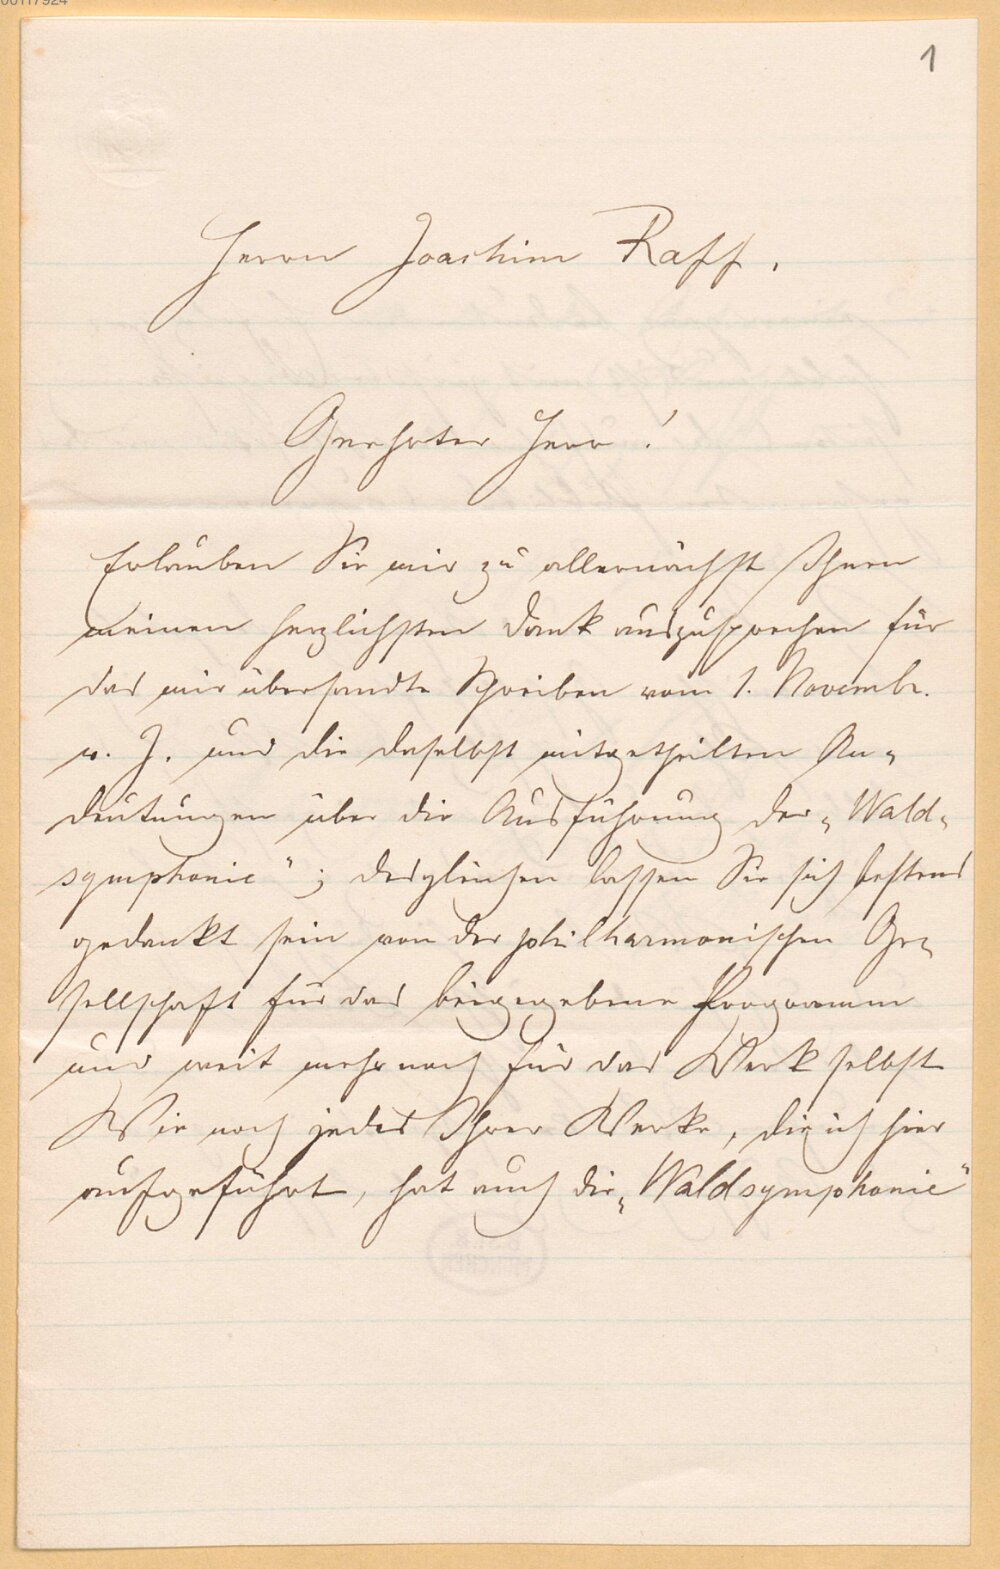 00117924
1
Herrn Joachim Raff.
Geehrter Herr!
Erlauben Sie mir zu allernächst Ihnen
meinen herzlichsten Dank auszusprechen für
das mir übersandte Schreiben vom 1. Novembr.
v. J. und die daselbst mitgetheilten An„
deutungen über die Ausführung der „Wald„
symphonie“; desgleichen lassen Sie sich bestens
gedankt sein von der philharmonischen Ge„
sellschaft für das beigegebene Programm
und weit mehr noch für das Werk selbst
Wie noch jedes Ihrer Werke, die ich hier
aufgeführt, hat auch die „Waldsymphonie“